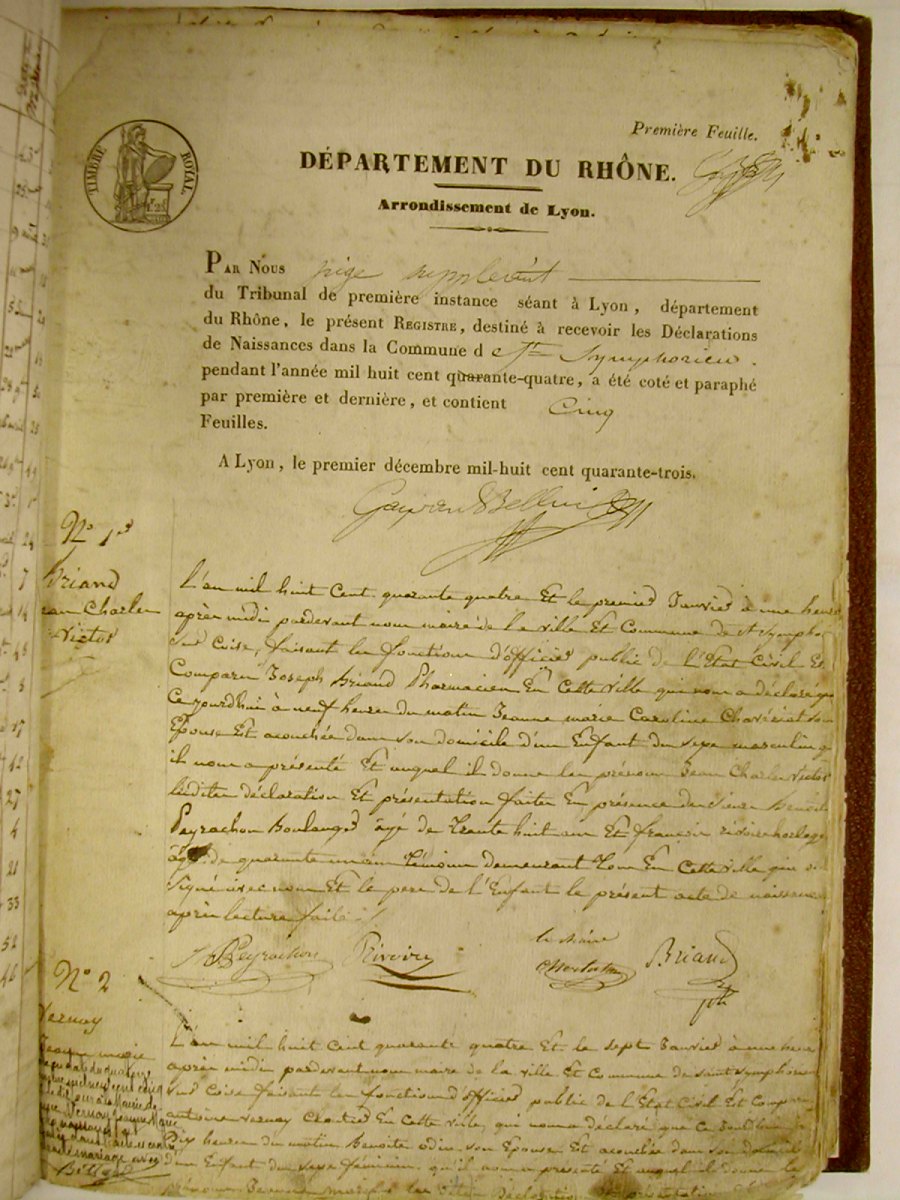 Première Feuille.
TIMBRE ROYAL.
DÉPARTEMENT DU RHÔNE.
Arrondissement de Lyon.
PAR NOUS juge suppléant
du Tribunal de première instance séant à Lyon, département
du Rhône, le présent REGISTRE, destiné à recevoir les Déclarations
de Naissances dans la Commune d e St. Symphorien.
pendant l'année mil huit cent quarante-quatre, a été coté et paraphé
par première et dernière, et contient Cinq
Feuilles.
A Lyon, le premier décembre mil-huit cent quarante-trois.
N° 1er
Briand
Jean Charles
Victor
L'an mil huit Cent quarante quatre Et le premier Janvier à une heure
après midi pardevant nous maire de la ville Et Commune de St Sympho
Sur Coise, faisant les fonctions d'officier public de l'Etat Civil Est
Comparu Joseph Briand Pharmacien En Cette ville qui nous a déclaré que
Ce jourdhui à neuf heures du matin Jeanne marie Caroline Chavériat son
Epouse Est acouchée dans son domicile d'un Enfant du sexe masculin q
il nous a présenté Et auquel il donne les prénoms Jean Charles Victor
lesdites déclaration Et présentation faites En présence des sieurs Benoit
Peyrachon Boulanger âgé de trente huit ans Et françois rivoire horloger
âgé de quarante un ans témoins demeurant tous En Cette ville qui ont
Signé avec nous Et le pere de l'Enfant le présent acte de naissance
après lecture faite.
Peyrachon Rivoire le Maire Briand
N° 2
Vernay
Jeanne marie
L'an mil huit Cent quarante quatre Et le sept Janvier à une heure
après midi pardevant nous maire de la ville Et Commune de saint Symphorien
Sur Coise faisant les fonctions d'officier public de l'Etat Civil Est Comparu
antoine Vernay En Cette ville, qui nous a déclaré que Ce jourdhui à
Dix heures du matin Benoite odin son Epouse Est acouchée dans son domicile
d'un Enfant du sexe féminin, qu'il nous a présenté Et auquel il donne les
prénoms Jeanne marie les dites Déclaration Et présentation